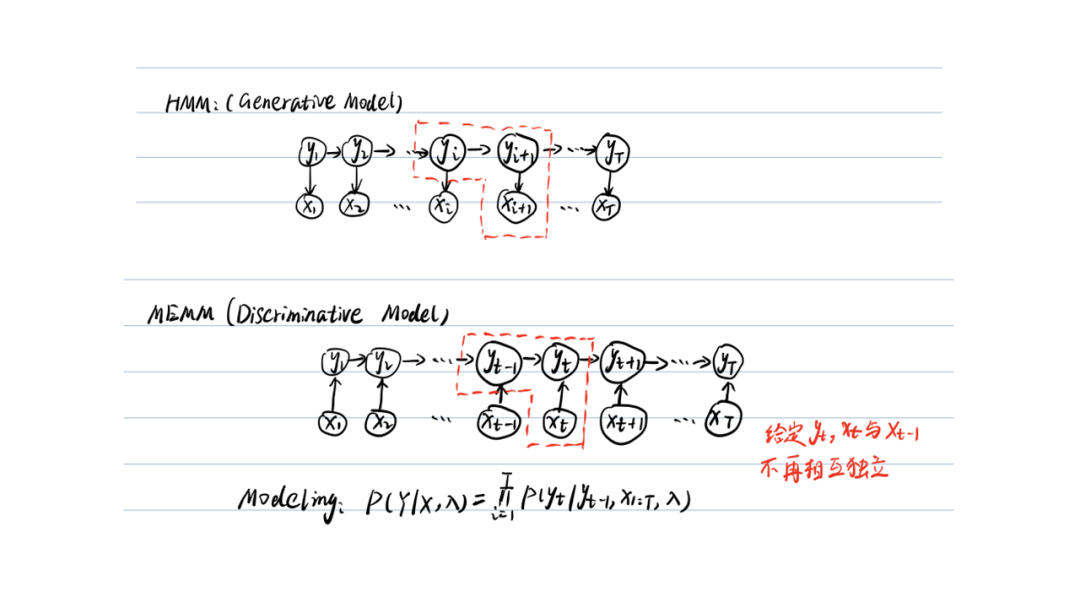 HMM: (Generative Model)
y₁ y₂ ... yᵢ yᵢ₊₁ ... y_T
x₁ x₂ ... xᵢ xᵢ₊₁ ... x_T
MEMM (Discriminative Model)
y₁ y₂ ... yₜ₋₁ yₜ yₜ₊₁ ... y_T
x₁ x₂ ... xₜ₋₁ xₜ xₜ₊₁ ... x_T
给定 yₜ, xₜ与 xₜ₋₁
不再相互独立
Modeling: P(Y|X,λ) = ∏ᵢ₌₁ᵀ P(yₜ|yₜ₋₁, x₁:T, λ)